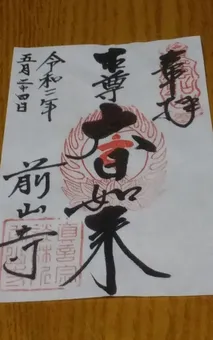 奉拝
本尊
大日如来
令和二年
五月二十四日
前山寺